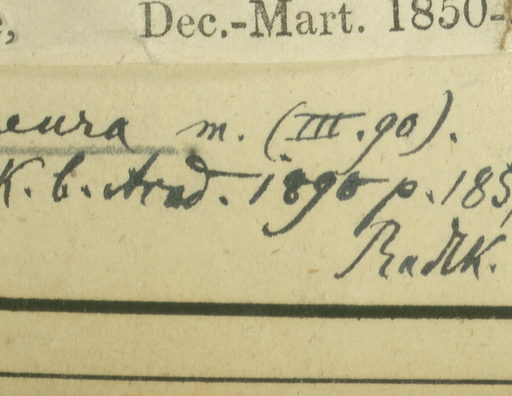 Dec.-Mart. 1850-
eura m. (III. 90).
K. b. Acad. 1890 p. 185
Radlk.